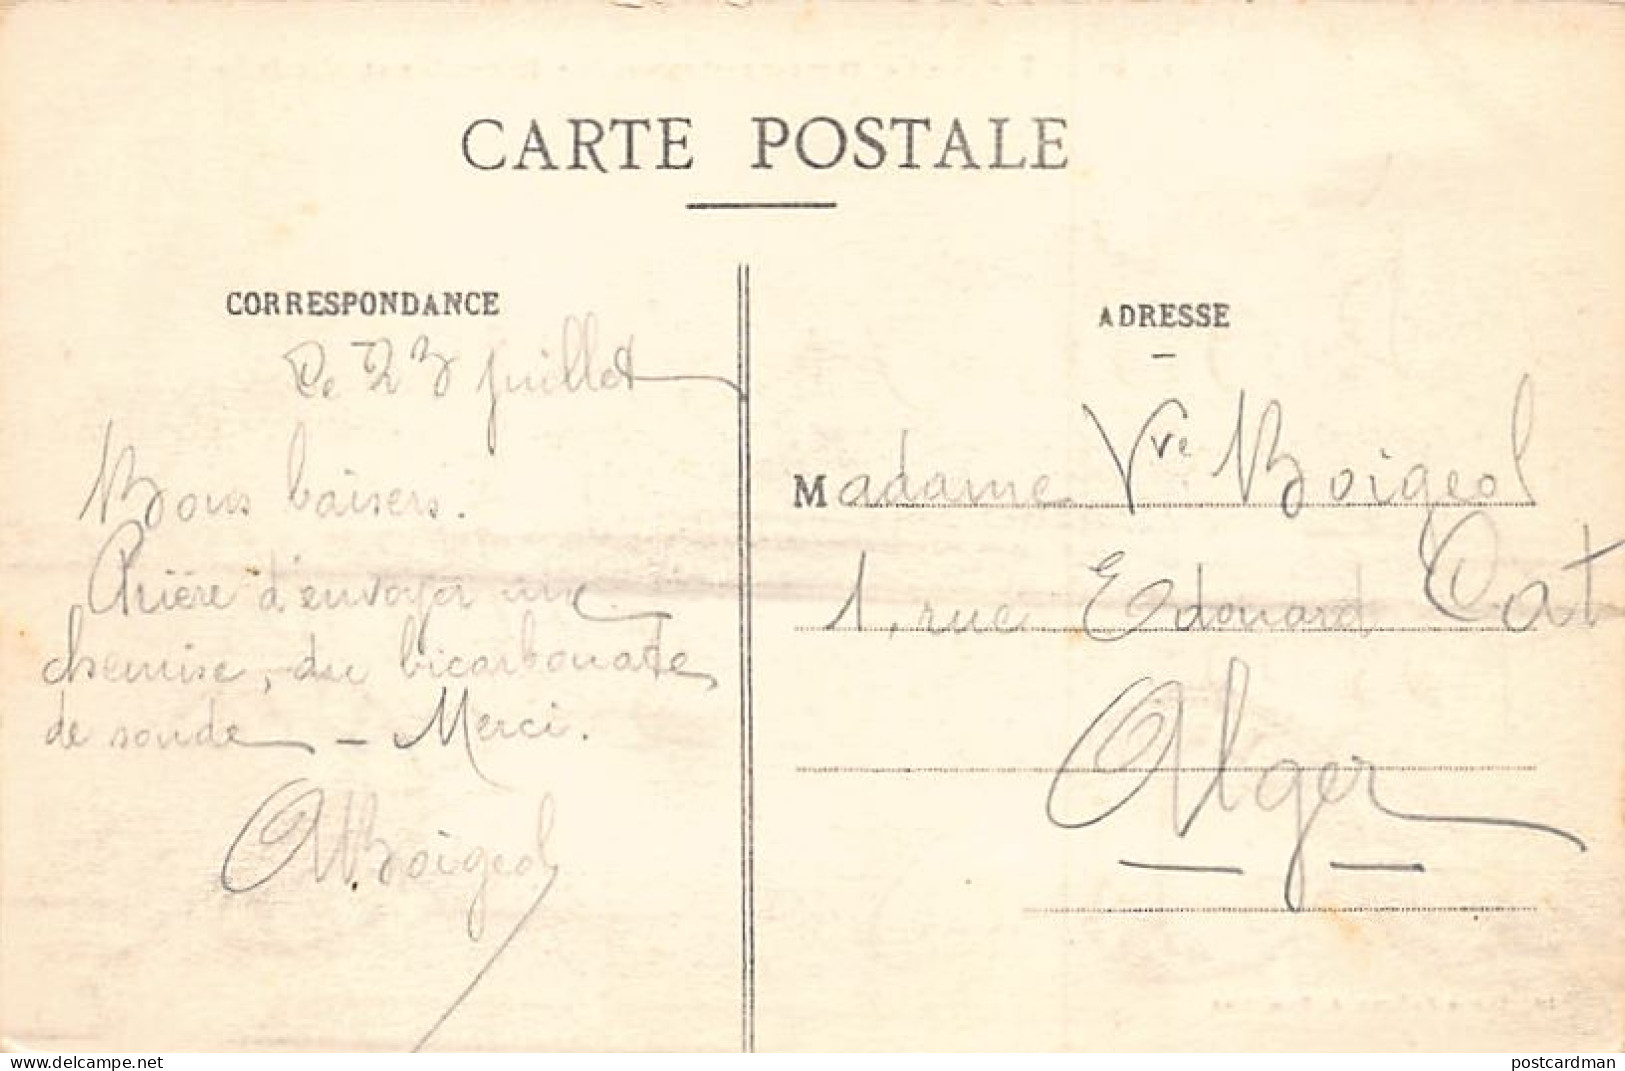 CARTE POSTALE
CORRESPONDANCE
Le 23 juillet
Bons baisers.
Prière d'envoyer une
chemise, du bicarbonate
de soude — Merci.
ABoigeol
ADRESSE
Madame Vve Boigeol
1, rue Edouard Cat
Alger
www.delcampe.net
postcardman